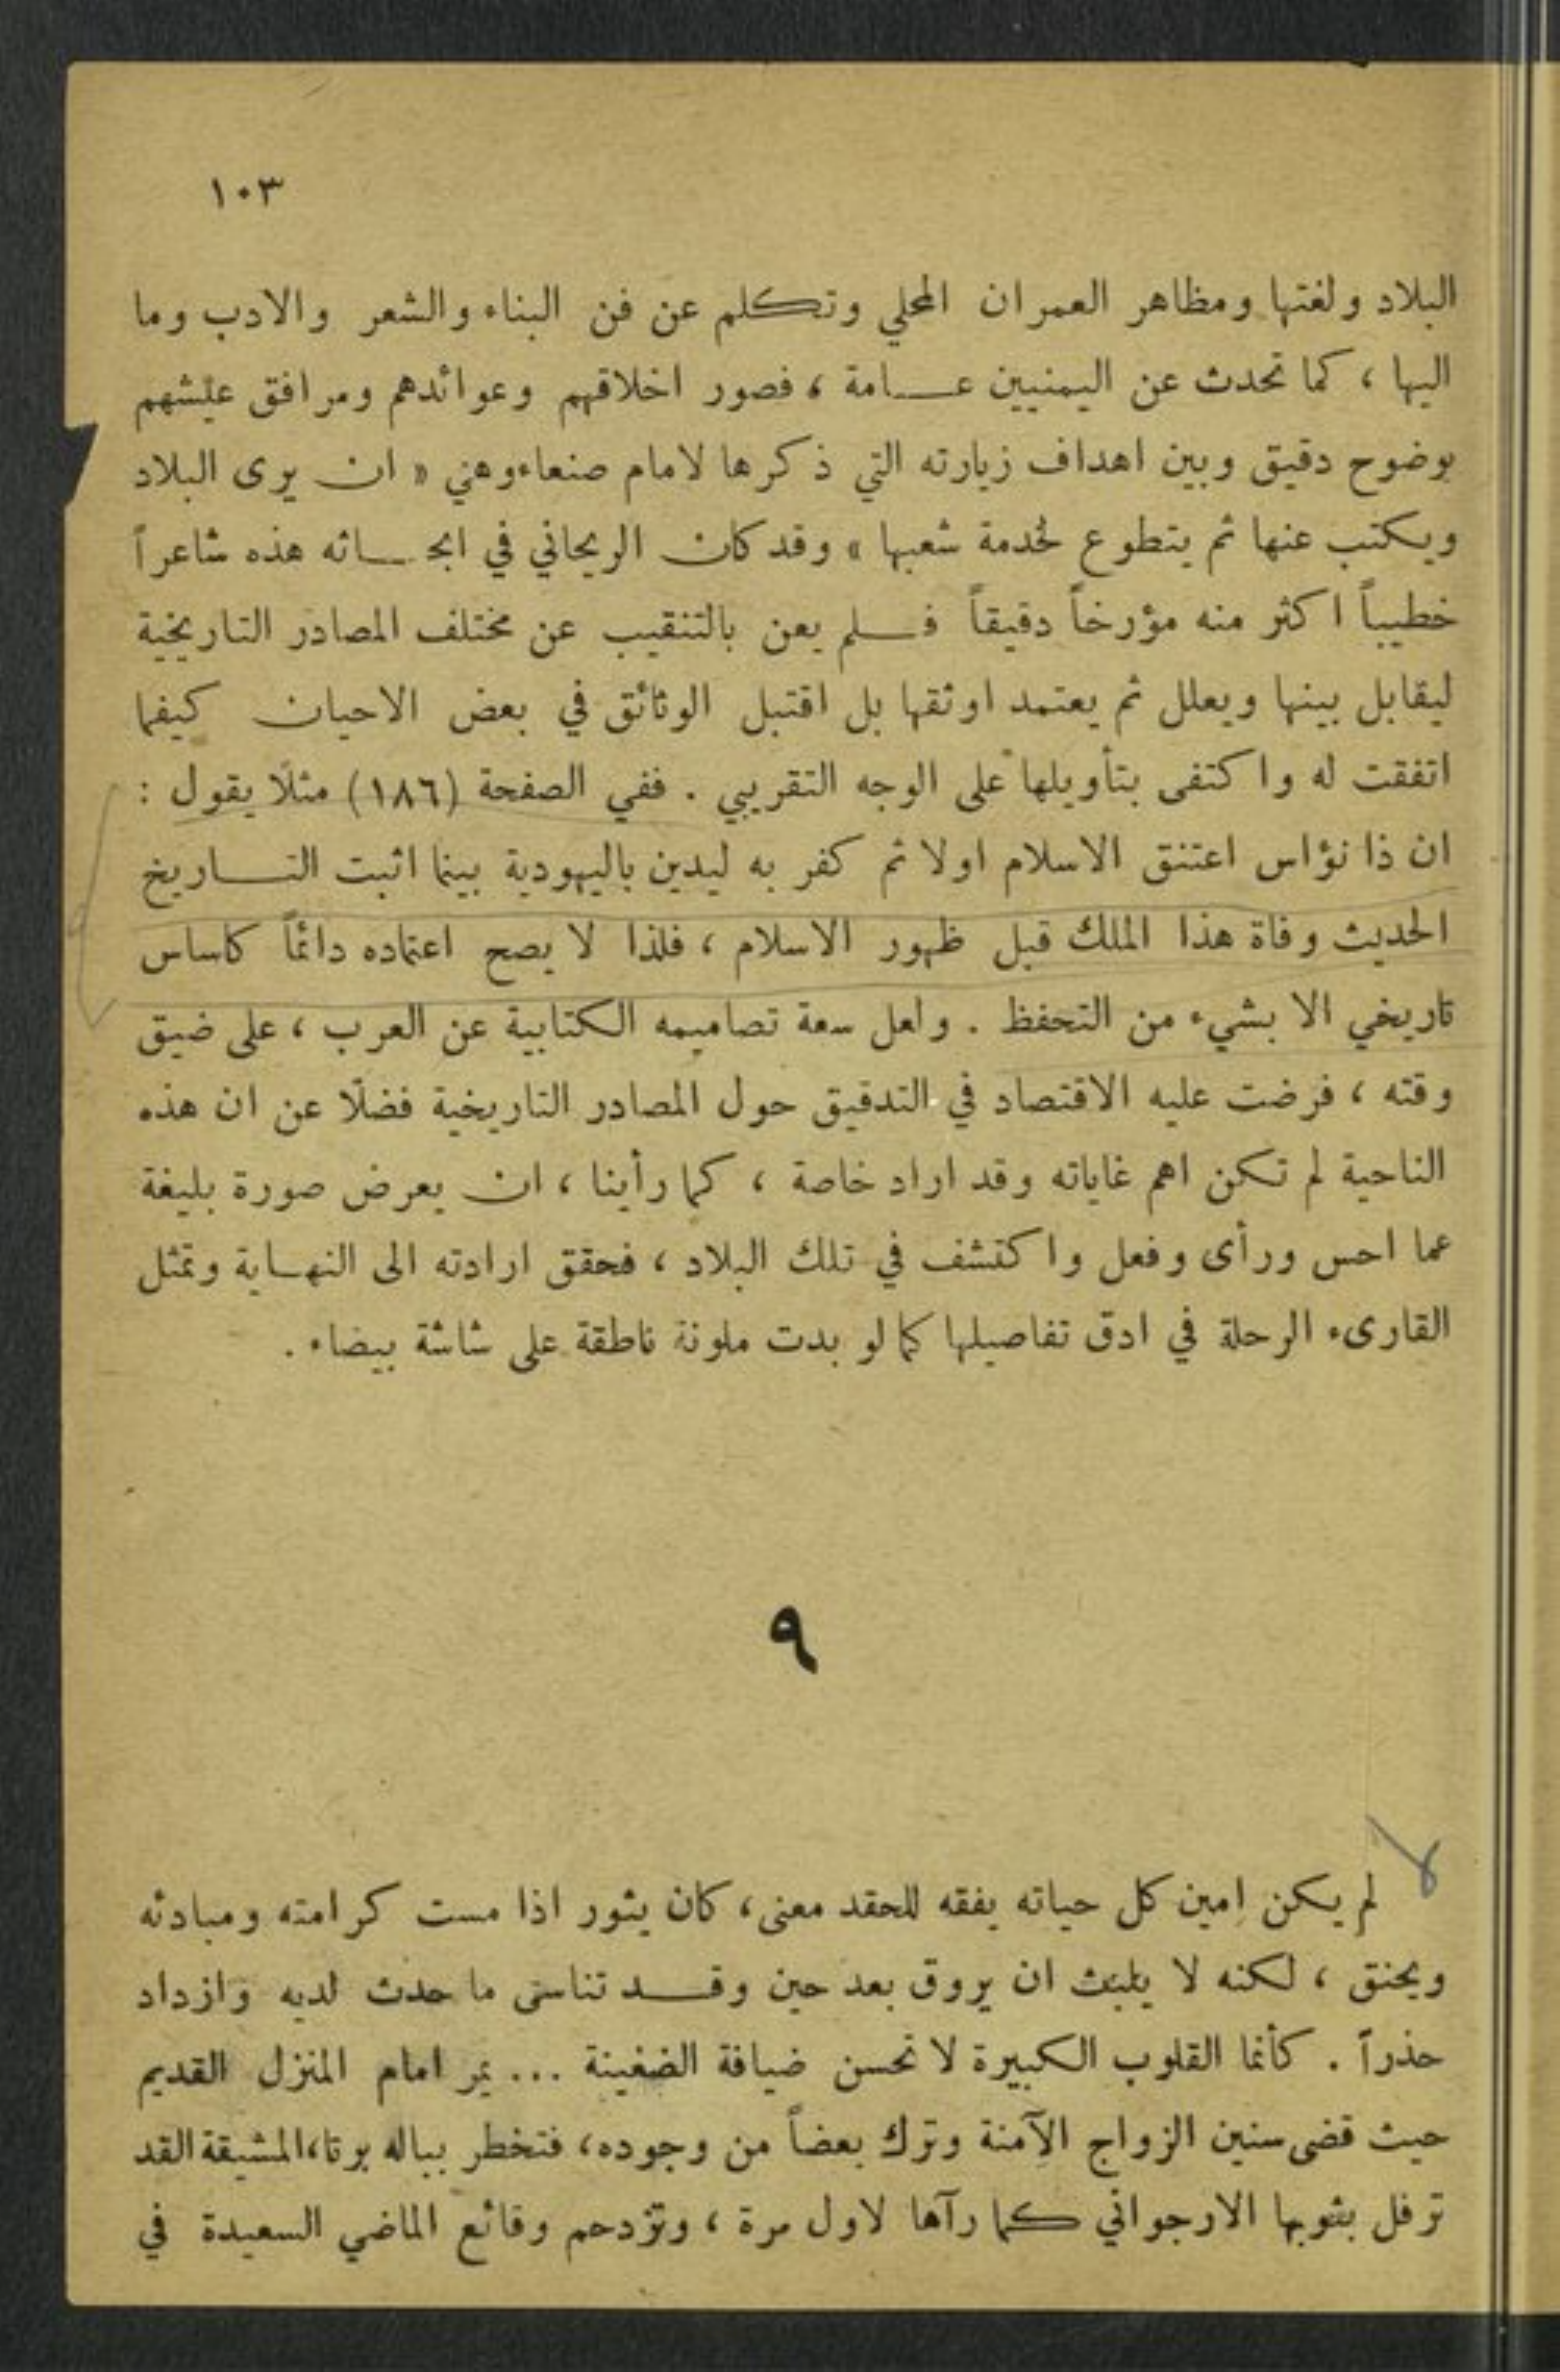 ١٠٣
البلاد ولغتها ومظاهر العمران المحلي وتكلم عن فن البناء والشعر والادب وما
اليها ، كما تحدث عن اليمنيين عامة ، فصور اخلاقهم وعوائدهم ومرافق عيشهم
بوضوح دقيق وبين اهداف زيارته التي ذكرها لامام صنعاء وهي « ان يرى البلاد
ويكتب عنها ثم يتطوع لخدمة شعبها » وقد كان الريحاني في ابحاثه هذه شاعراً
خطيباً اكثر منه مؤرخاً دقيقاً فلم يعن بالتنقيب عن مختلف المصادر التاريخية
ليقابل بينها ويعلل ثم يعتمد اوثقها بل اقتبل الوثائق في بعض الاحيان كيفما
اتفقت له واكتفى بتأويلها على الوجه التقريبي . ففي الصفحة (١٨٦) مثلًا يقول :
ان ذا نؤاس اعتنق الاسلام اولا ثم كفر به ليدين باليهودية بينما اثبت التاريخ
الحديث وفاة هذا الملك قبل ظهور الاسلام ، فلذا لا يصح اعتماده دائماً كاساس
تاريخي الا بشيء من التحفظ . ولعل سعة تصاميمه الكتابية عن العرب ، على ضيق
وقته ، فرضت عليه الاقتصاد في التدقيق حول المصادر التاريخية فضلًا عن ان هذه
الناحية لم تكن اهم غاياته وقد اراد خاصة ، كما رأينا ، ان يعرض صورة بليغة
عما احس ورأى وفعل واكتشف في تلك البلاد ، فحقق ارادته الى النهاية وتمثل
القارىء الرحلة في ادق تفاصيلها كما لو بدت ملونة ناطقة على شاشة بيضاء .
٩
لم يكن امين كل حياته يفقه للحقد معنى ، كان يثور اذا مست كرامته ومبادئه
ويحنق ، لكنه لا يلبث ان يروق بعد حين وقد تناسى ما حدث لديه وازداد
حذراً . كأنما القلوب الكبيرة لا تحسن ضيافة الضغينة ... يمر امام المنزل القديم
حيث قضى سنين الزواج الآمنة وترك بعضاً من وجوده ، فتخطر بباله برتا ، المشيقة القد
ترفل بثوبها الارجواني كما رآها لاول مرة ، وتزدحم وقائع الماضي السعيدة في